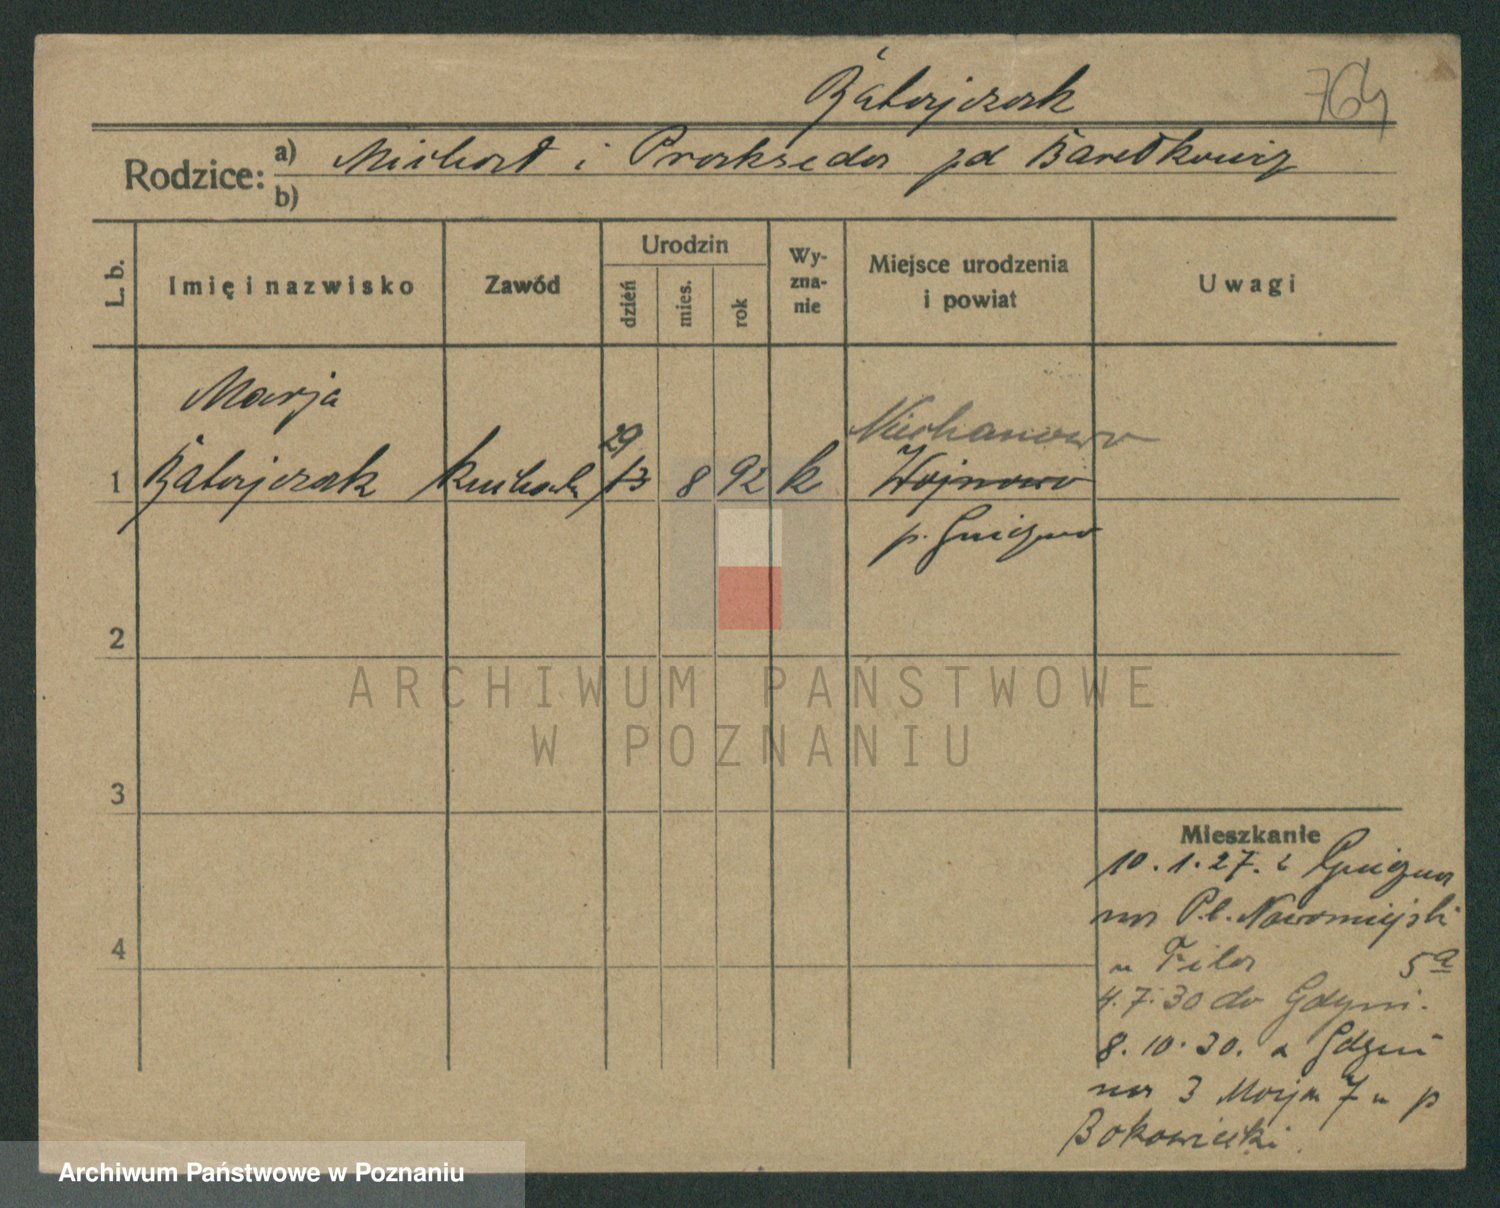 Batajczak 764
Rodzice: a) Michał i Prakseda zd Bartkowiak
b)
L. b. Imię i nazwisko Zawód Urodzin dzień mies. rok Wy-zna-nie Miejsce urodzenia i powiat Uwagi
Marja
29 Niechanowo
1 kucharka 13 8 92 k Wojnowo
p. Gniezno
2
ARCHIWUM PAŃSTWOWE
W POZNANIU
3
Mieszkanie
10.1.27. z Gniezna
na Pl. Nowomiejski
4 u Fila 5a
4.7.30 do Gdyni.
8.10.30. z Gdyni
na 3 Maja 7 u p
Archiwum Państwowe w Poznaniu